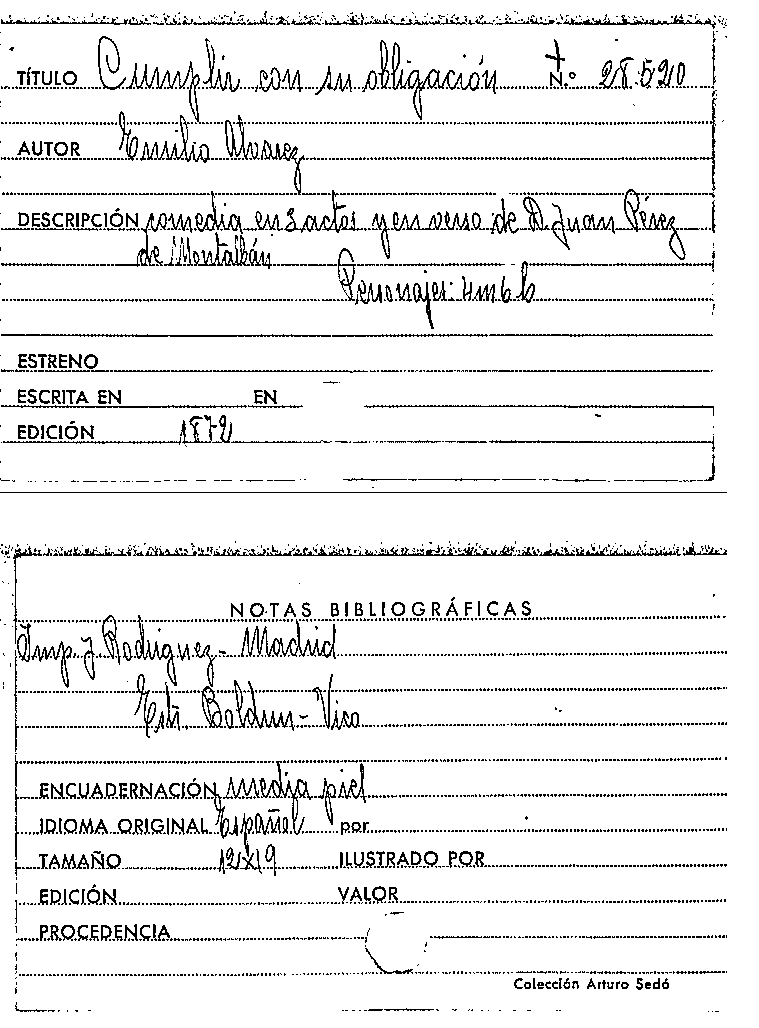 TÍTULO Cumplir con su obligación N.º 28.520
AUTOR Emilio Alvarez
DESCRIPCIÓN comedia en 3 actos y en verso de D. Juan Pérez
de Montalbán
Personajes: 4m6h
ESTRENO
ESCRITA EN EN
EDICIÓN 1872
NOTAS BIBLIOGRÁFICAS
Imp. J. Rodriguez - Madrid
Estr. Boldun - Vico
ENCUADERNACIÓN media piel
IDIOMA ORIGINAL Español por
TAMAÑO 12x19 ILUSTRADO POR
EDICIÓN VALOR
PROCEDENCIA
Colección Arturo Sedó